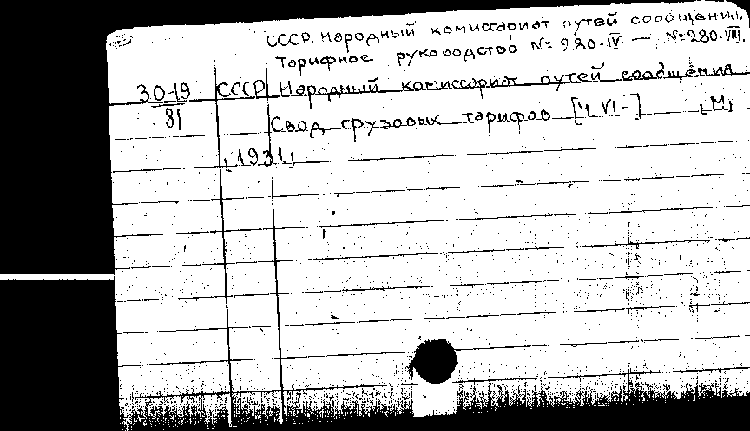 СССР. Народный комиссариат путей сообщения.
Тарифное руководство №: 280.IV — №280.VII.
30-19 СССР Народный комиссариат путей сообщения
31 Свод грузовых тарифов [Ч VI-] [М]
[1931]